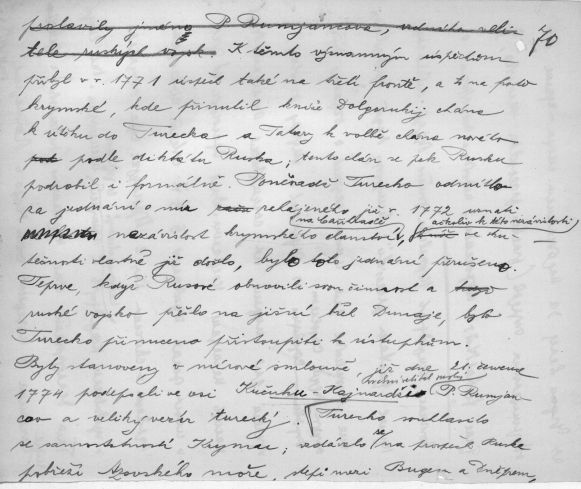 70
proslavily jméno P. Rumjancova, vrchního velitele
ruských vojsk. K těmto významným úspěchům
přibyl v r. 1771 úspěch také na třetí frontě, a to na poto
krymské, kde přinutil kníže Dolgorukij chána
k útěku do Turecka a Tatary k volbě chána nového
pod podle diktátu Ruska; tento chán se pak Rusku
podrobil i formálně. Poněvadž Turecko odmítlo
za jednání o mír zahájeného již v r. 1772 uznati
(na Caričradě) ačkoliv k této nezávislosti
nezávislost krymského chanství, ve sku-
tečnosti vlastně již došlo, bylo toto jednání přerušeno.
Teprve, když Rusové obnovili svou činnost a
ruské vojsko přešlo na jižní břeh Dunaje, bylo
Turecko přinuceno přistoupiti k ústupkům.
Byly stanoveny v mírové smlouvě, již dne 21. července
vrchní velitel ruský
1774 podepsali ve vsi Küčükü-Kajnardži P. Rumjan-
cov a veliký vezír turecký. Turecko souhlasilo
se samostatností Krymu, vzdávalo se na prospěch Ruska
pobřeží Azovského moře, stepi mezi Bugem a Dněprem,